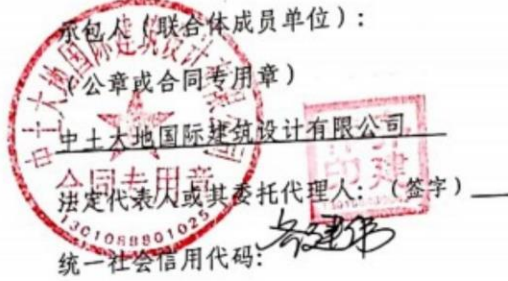 承包人（联合体成员单位）：
（公章或合同专用章）
中土大地国际建筑设计有限公司
法定代表人或其委托代理人：（签字）
统一社会信用代码：
中土大地国际建筑设计有限公司
合同专用章